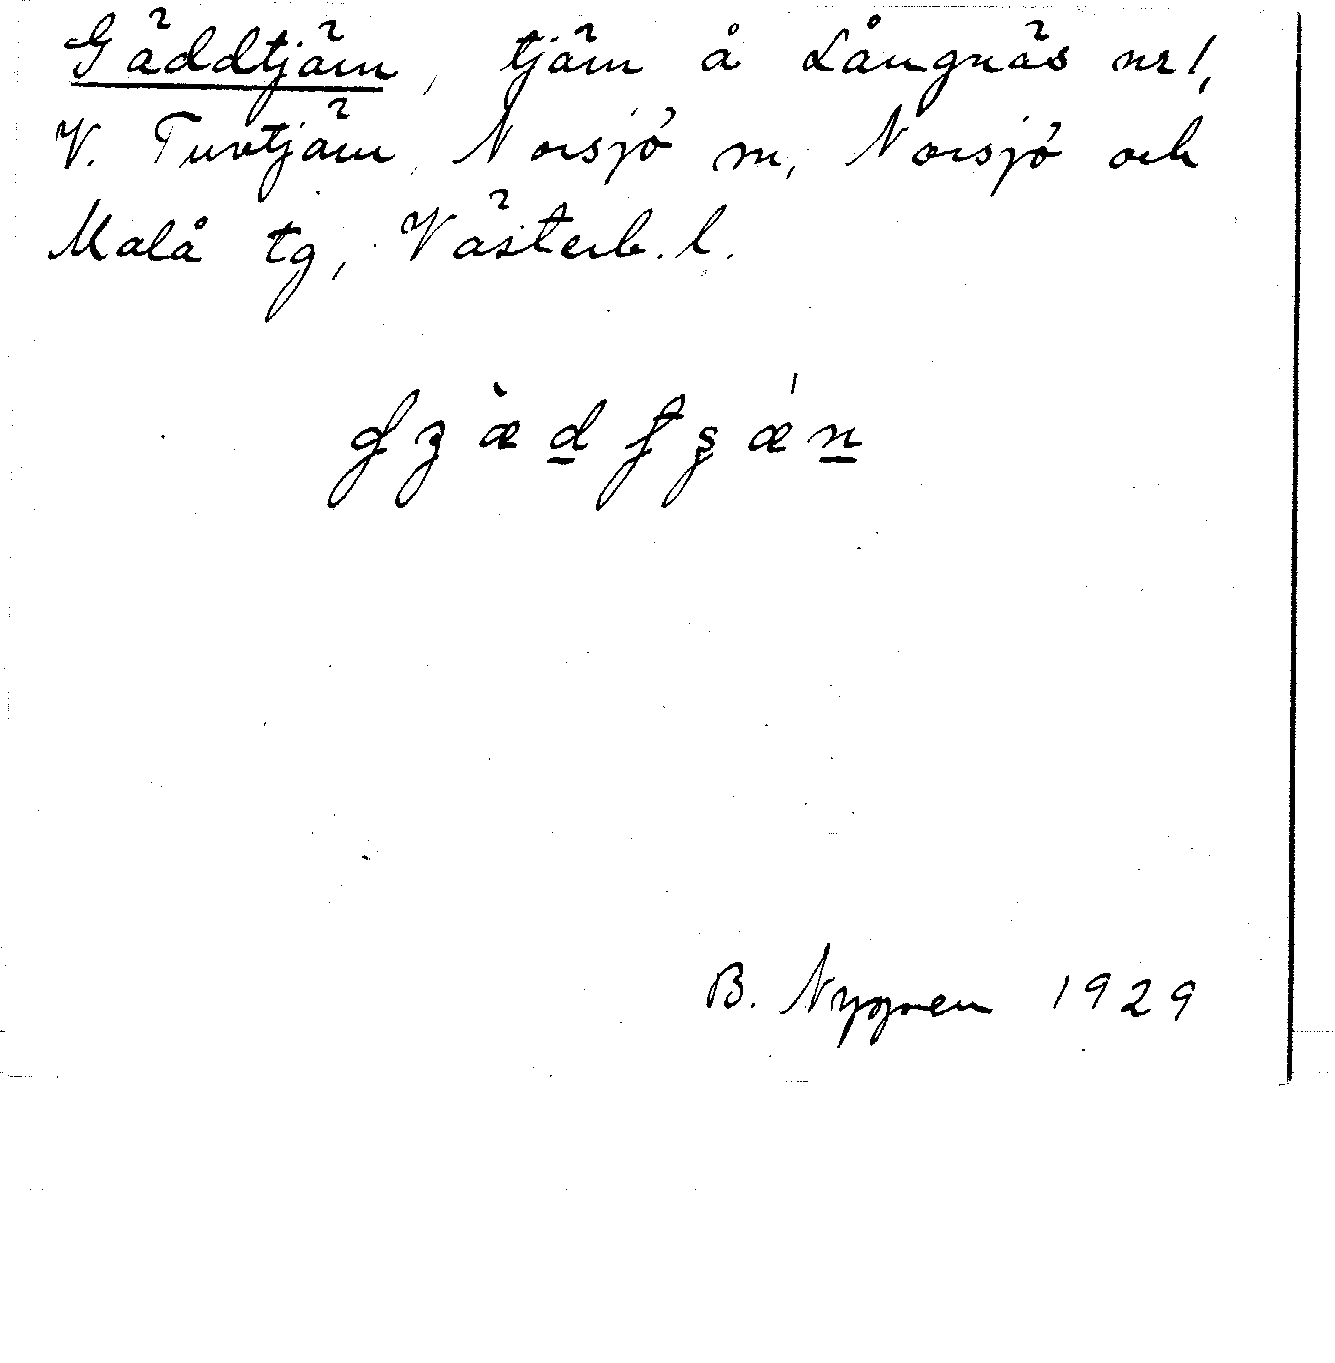 Gäddtjärn, tjärn å Långnäs nr 1,
V. Tuvtjärn, Norsjö sn, Norsjö och
Malå tg, Västerb. l.
B. Nygren 1929